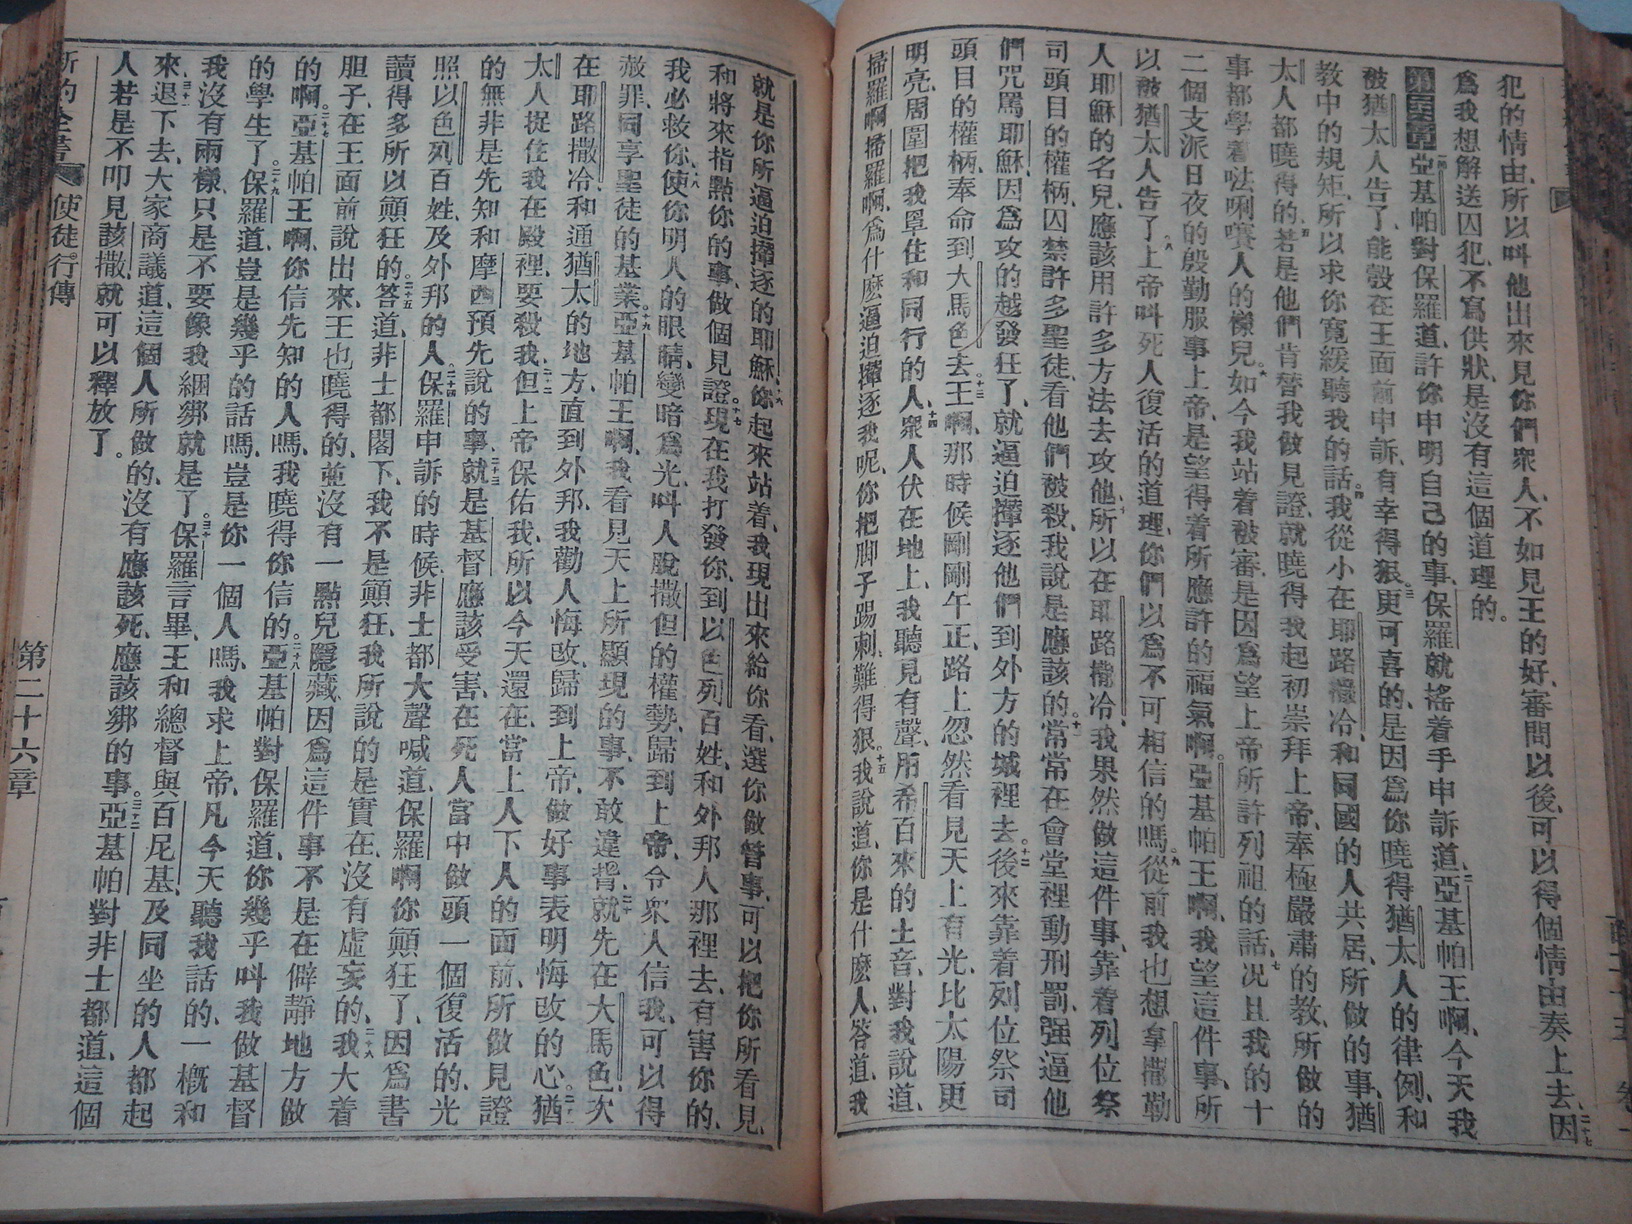 犯的情由、所以叫他出來見你們衆人、不如見王的好、審問以後、可以得個情由奏上去、二十七因
爲我想解送囚犯、不寫供狀、是沒有這個道理的。
第二十六章 一亞基帕對保羅道、許你申明自己的事、保羅就搖着手申訴道、二亞基帕王啊、今天我
被猶太人告了、能彀在王面前申訴、有幸得狠、三更可喜的、是因爲你曉得猶太人的律例、和
教中的規矩、所以求你寬緩聽我的話、四我從小在耶路撒冷、和同國的人共居、所做的事、猶
太人都曉得的、五若是他們肯替我做見證、就曉得我起初崇拜上帝、奉極嚴肅的教、所做的
事都學着㕶唎㘔人的樣兒、六如今我站着被審、是因爲望上帝所許列祖的話、七况且我的十
二個支派日夜的殷勤服事上帝、是望得着所應許的福氣啊。亞基帕王啊、我望這件事、所
以被猶太人告了、八上帝叫死人復活的道理、你們以爲不可相信的嗎、九從前我也想拿撒勒
人耶穌的名兒、應該用許多方法去攻他、十所以在耶路撒冷、我果然做這件事、靠着列位祭
司頭目的權柄、囚禁許多聖徒、看他們被殺、我說是應該的。十一常常在會堂裡動刑罰、强逼他
們咒罵耶穌、因爲攻的越發狂了、就逼迫攆逐他們到外方的城裡去。十二後來靠着列位祭司
頭目的權柄、奉命到大馬色去、十三王啊、那時候剛剛午正、路上忽然看見天上有光、比太陽更
明亮、周圍把我罩住和同行的人、十四衆人伏在地上、我聽見有聲、用希百來的土音、對我說道、
掃羅啊、掃羅啊、爲什麽逼迫攆逐我呢、你把脚子踢刺、難得狠。十五我說道、你是什麽人、答道、我
就是你所逼迫攆逐的耶穌、十六你起來站着、我現出來給你看、選你做管事、可以把你所看見、
和將來指點你的事、做個見證。十七現在我打發你、到以色列百姓、和外邦人那裡去、有害你的、
我必救你、十八使你明人的眼睛、變暗爲光、叫人脫撒但的權勢、歸到上帝、令衆人信我、可以得
赦罪、同享聖徒的基業、十九亞基帕王啊、我看見天上所顯現的事、不敢違背、二十就先在大馬色、次
在耶路撒冷、和通猶太的地方、直到外邦、我勸人悔改、歸到上帝、做好事表明悔改的心。二十一猶
太人捉住我在殿裡、要殺我、二十二但上帝保佑我、所以今天還在、當上人下人的面前、所做見證
的無非是先知和摩西預先說的事、二十三就是基督應該受害、在死人當中做頭一個復活的、光
照以色列百姓、及外邦的人、二十四保羅申訴的時候、非士都大聲喊道、保羅啊、你顚狂了、因爲書
讀得多、所以顚狂的、二十五答道、非士都閣下、我不是顚狂、我所說的是實在、沒有虛妄的、二十六我大着
胆子、在王面前說出來、王也曉得的、並沒有一點兒隱藏、因爲這件事不是在僻靜地方做
的啊、二十七亞基帕王啊、你信先知的人嗎、我曉得你信的、二十八亞基帕對保羅道、你幾乎叫我做基督
的學生了、二十九保羅道、豈是幾乎的話嗎、豈是你一個人嗎、我求上帝、凡今天聽我話的、一概和
我沒有兩樣、只是不要像我綑綁就是了、三十保羅言畢、王和總督與百尼基、及同坐的人都起
來、三十一退下去、大家商議道、這個人所做的、沒有應該死、應該綁的事、三十二亞基帕對非士都道、這個
人若是不叩見該撒、就可以釋放了。
新約全書 使徒行傳 第二十六章